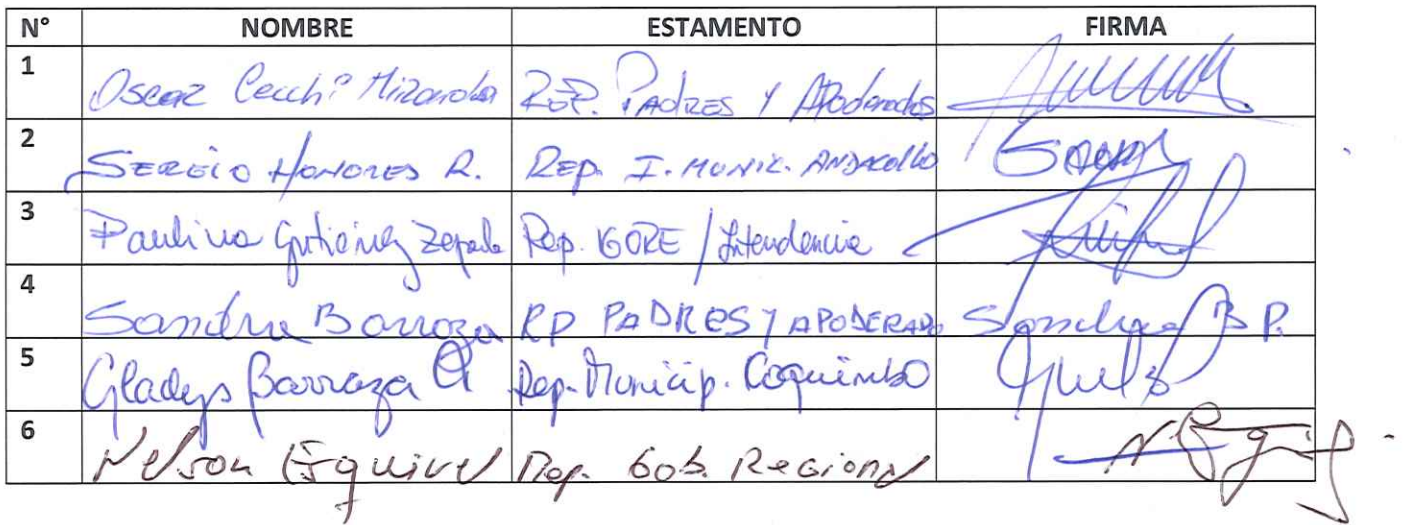 N° NOMBRE ESTAMENTO FIRMA
1 Oscar Cecchi Miranda Rep. Padres y Apoderados
2 Sergio Honores R. Rep. I. Munic. Andacollo
3 Paulina Gutiérrez Zepeda Rep. GORE / Intendencia
4 Sandra Barroza RP PADRES Y APODERADO Sandra B P.
5 Gladys Barraza Rep. Municip. Coquimbo
6 Nelson Esquivel Rep. Gob. Regional